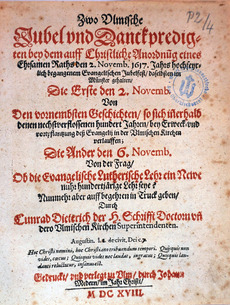 Zwo Ulmische
Jubel vnd Danckpredig-
ten bey dem auff Christliche Anordnũg eines
Ehrsamen Raths den 2. Novemb. 1617. Jahrs hochfeyr-
lich begangenem Evangelischen Jubelfest, daselbsten im
Münster gehalten,
Die Erste den 2. Novemb.
Von
Den vornembsten Geschichten, so sich innerhalb
denen nechstverflossenen hundert Jahren, bey Erweck vnd
vortpflantzung deß Evangelij in der Ulmischen Kirchen
verlauffen;
Die Ander den 6. Novemb.
Von der Frag,
Ob die Evangelische Lutherische Lehr ein Newe
nuhr hundertjärige Lehr seye?
Nunmehr aber auff begehren in Truck geben,
Durch
Cunrad Dieterich der H. Schrifft Doctorn vñ
dero Ulmischen Kirchen Superintendenten.
Augustin. l. 2. de civit. Dei c. 7.
Hoc Christi nomini, hoc Christiano tribuendum tempori. Quisquis non
videt, cæcus; Quisquis videt nec laudat, ingratus; Quisquis lau-
danti reluctatur, insanus est.
Gedruckt, vnd verlegt zu Ulm, durch Johan
Medern, im Jahr Christi,
M DC XVIII.